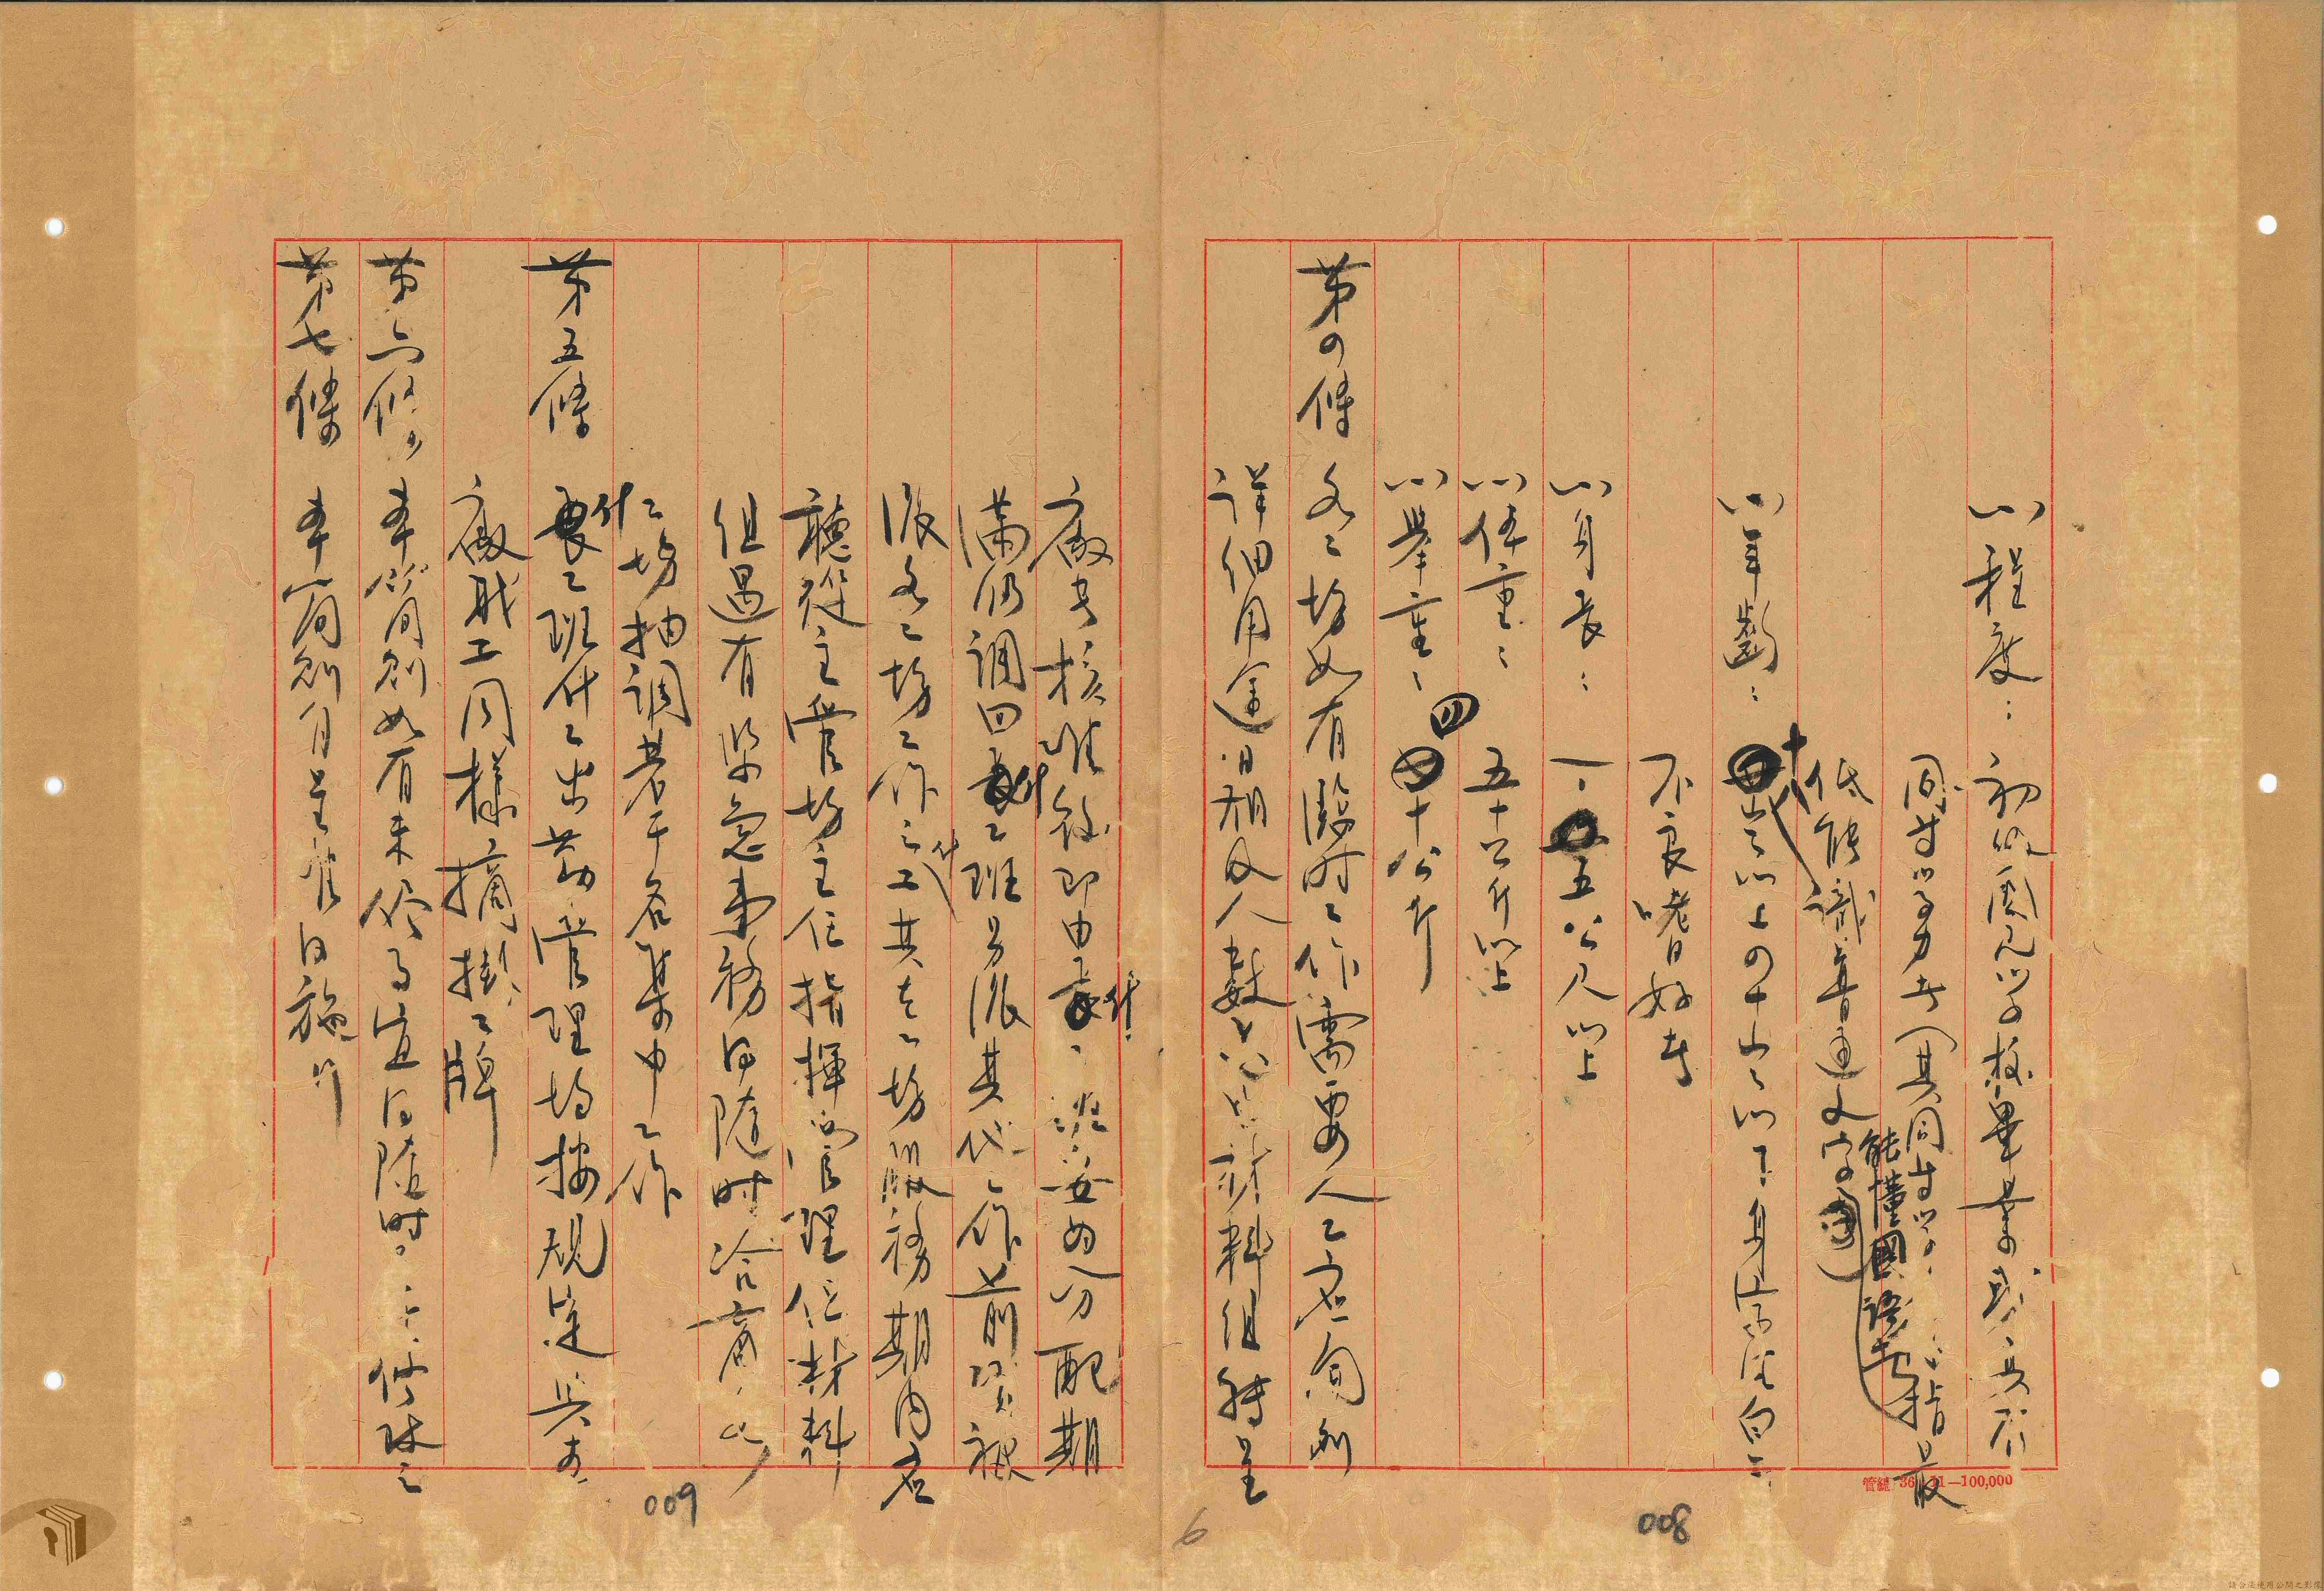 程度：初級國民學校畢業或具有
同等學力者（其同等學　指最
低能識普通文字
能懂國語者
年齡：十　歲以上四十歲以下身家清白無
不良嗜好者
身長：一·五五公尺以上
体重：五十公斤以上
舉重：四十公斤
第四條 各工場如有臨時工作需要人工應個別
詳細用途日期及人數　材料組轉呈
廠長核准後即由什工班妥為分配期
滿仍調回什工班另派其他工作前項被
派各工場工作之什工其在工場服務期內應
聽從主管場主任指揮　管理但材料
組遇有緊急事務得隨時洽商
什工場抽調若干名集中工作
第五條 什工班什工出勤管理均按規定與本
廠職工同樣摘掛工牌
第六條 本簡則如有未　事宜得隨時　修改之
第七條 本簡則自呈准日施行
管總 36 11—100,000
008
009
6